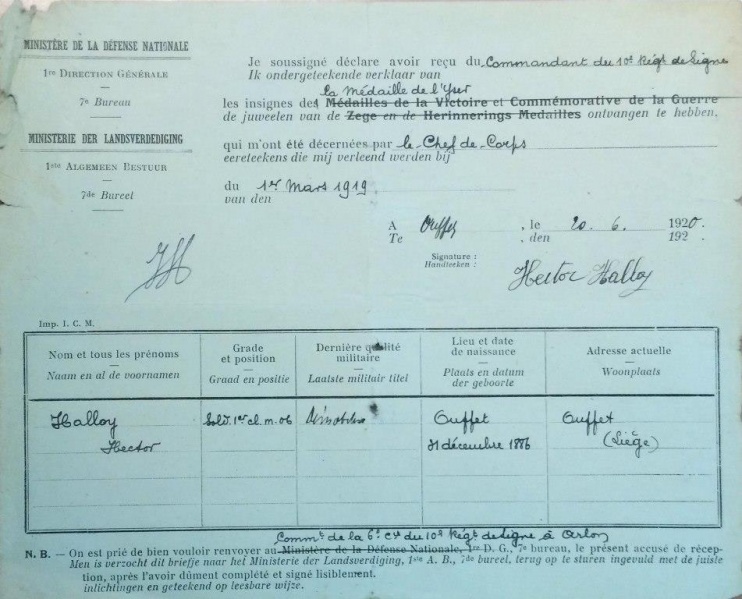 MINISTÈRE DE LA DÉFENSE NATIONALE
1re DIRECTION GÉNÉRALE
7e Bureau
MINISTERIE DER LANDSVERDEDIGING
1ste ALGEMEEN BESTUUR
7de Bureel
Je soussigné déclare avoir reçu du Commandant du 10e Régt de Ligne
Ik ondergeteekende verklaar van
la Médaille de l'Yser
les insignes des Médailles de la Victoire et Commémorative de la Guerre
de juweelen van de Zege en de Herinnerings Medailles ontvangen te hebben,
qui m'ont été décernées par le Chef de Corps
eereteekens die mij verleend werden bij
du 1er Mars 1919
van den
A Ouffet, le 20. 6. 1920.
Te , den 192 .
Signature :
Handteeken :
Hector Halloy
JH
Imp. I. C. M.
Nom et tous les prénoms
Naam en al de voornamen
Grade et position
Graad en positie
Dernière qualité militaire
Laatste militair titel
Lieu et date de naissance
Plaats en datum der geboorte
Adresse actuelle
Woonplaats
Halloy
Hector
Sold. 1er cl. m. 06
Ouffet
31 décembre 1886
Ouffet
(Liège)
Commt de la 6e Cie du 10e Régt de Ligne à Arlon
N. B. — On est prié de bien vouloir renvoyer au Ministère de la Défense Nationale, 1re D. G., 7e bureau, le présent accusé de récep-
Men is verzocht dit briefje naar het Ministerie der Landsverdediging, 1ste A. B., 7de bureel, terug op te sturen ingevuld met de juiste
tion, après l'avoir dûment complété et signé lisiblement.
inlichtingen en geteekend op leesbare wijze.